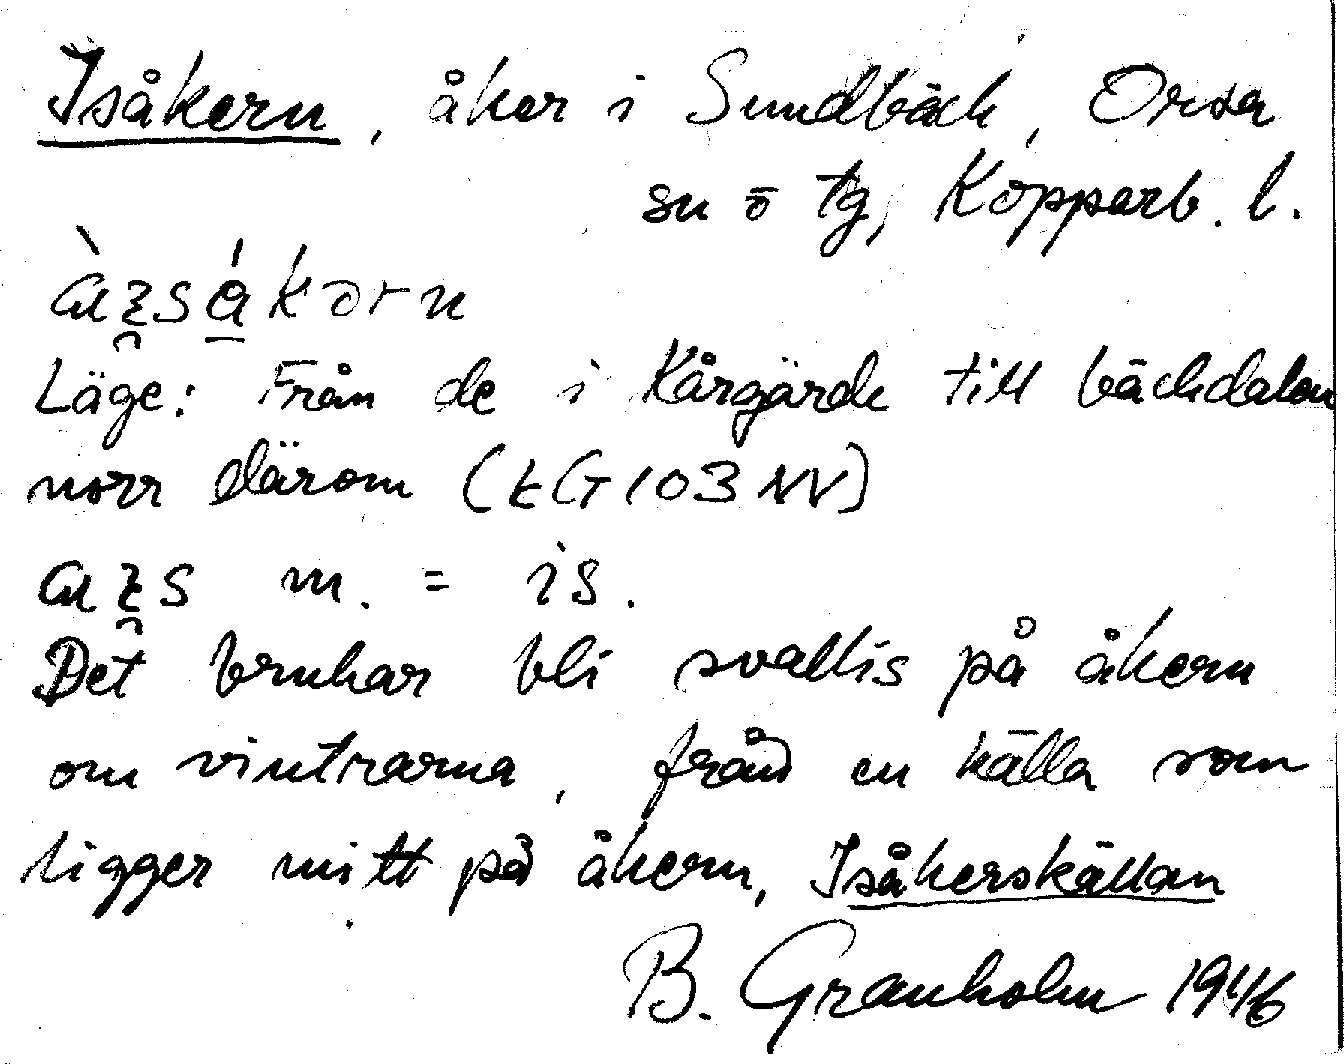 Isåkern, åker i Sundbäck, Orsa
sn o tg, Kopparb. l.
Läge: Från de i Kårgärde till bäckdalen
norr därom (EG 103 NV)
m. = is.
Det brukar bli svallis på åkern
om vintrarna, från en källa som
ligger mitt på åkern, Isåkerskällan
B. Granholm 1946